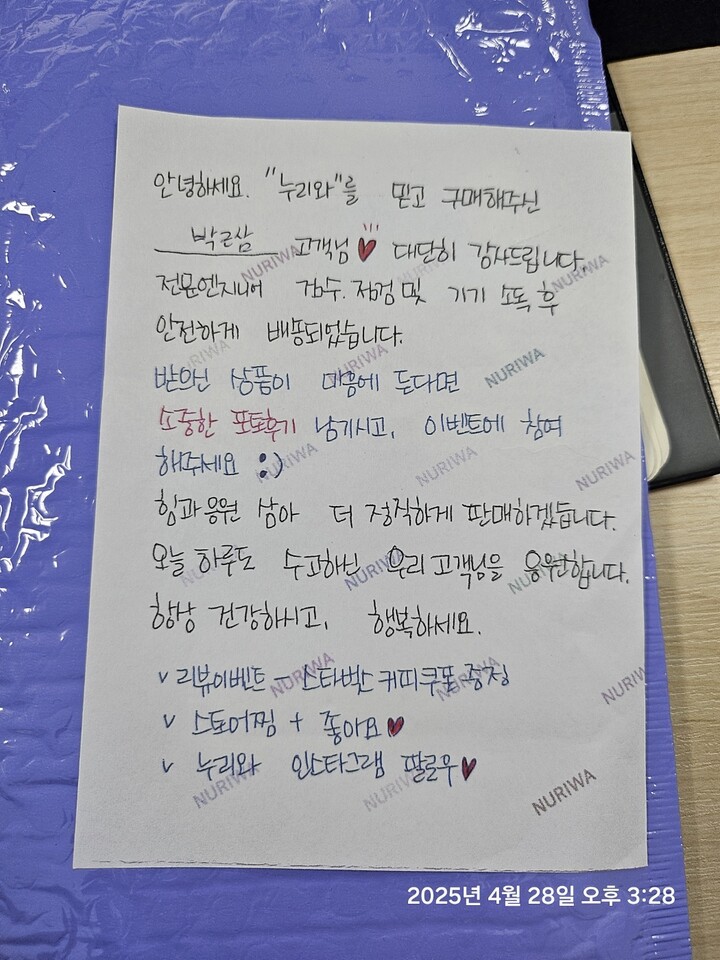 안녕하세요. "누리와"를 믿고 구매해주신
박근삼 고객님♥ 대단히 감사드립니다.
전문엔지니어 검수.점검 및 기기 소독 후
안전하게 배송되었습니다.
받으신 상품이 마음에 든다면
소중한 포토후기 남기시고, 이벤트에 참여
해주세요 :)
힘과 응원 삼아 더 정직하게 판매하겠습니다.
오늘 하루도 수고하신 우리 고객님을 응원합니다.
항상 건강하시고, 행복하세요.
v 리뷰이벤트 - 스타벅스 커피쿠폰 증정
v 스토어찜 + 좋아요♥
v 누리와 인스타그램 팔로우♥
NURIWA
NURIWA
NURIWA
NURIWA
NURIWA
NURIWA
NURIWA
NURIWA
NURIWA
NURIWA
NURIWA
NURIWA
NURIWA
2025년 4월 28일 오후 3:28